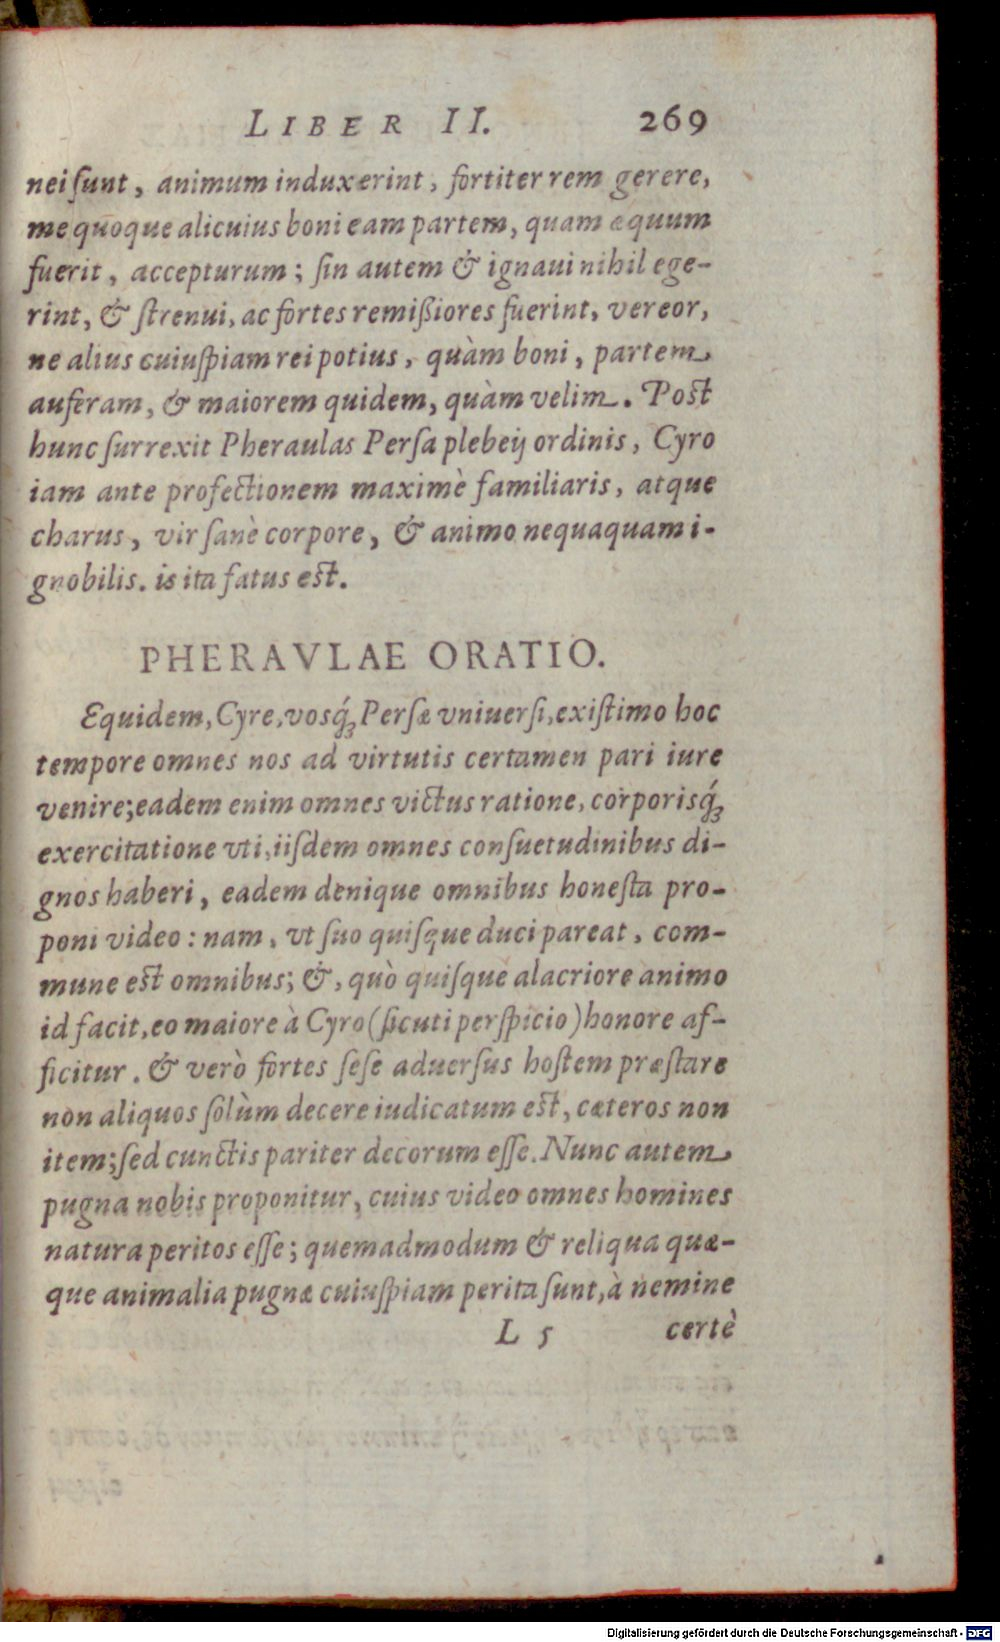 LIBER II. 269
nei ſunt, animum induxerint, fortiter rem gerere,
me quoque alicuius boni eam partem, quam æquum
fuerit, accepturum; ſin autem & ignaui nihil ege-
rint, & ſtrenui, ac fortes remißiores fuerint, vereor,
ne alius cuiuſpiam rei potius, quàm boni, partem
auferam, & maiorem quidem, quàm velim. Poſt
hunc ſurrexit Pheraulas Perſa plebeij ordinis, Cyro
iam ante profectionem maximè familiaris, atque
charus, vir ſanè corpore, & animo nequaquam i-
gnobilis. is ita fatus eſt.
PHERAVLAE ORATIO.
Equidem, Cyre, vosq́ꝫ Perſæ vniuerſi, exiſtimo hoc
tempore omnes nos ad virtutis certamen pari iure
venire; eadem enim omnes victus ratione, corporisq́ꝫ
exercitatione vti, iiſdem omnes conſuetudinibus di-
gnos haberi, eadem denique omnibus honeſta pro-
poni video: nam, vt ſuo quiſque duci pareat, com-
mune eſt omnibus; &, quò quiſque alacriore animo
id facit, eo maiore à Cyro (ſicuti perſpicio) honore af-
ficitur. & verò fortes ſeſe aduerſus hoſtem præſtare
non aliquos ſolùm decere iudicatum eſt, cæteros non
item; ſed cunctis pariter decorum eſſe. Nunc autem
pugna nobis proponitur, cuius video omnes homines
natura peritos eſſe; quemadmodum & reliqua quæ-
que animalia pugnæ cuiuſpiam perita ſunt, à nemine
L 5 certè
Digitalisierung gefördert durch die Deutsche Forschungsgemeinschaft - DFG